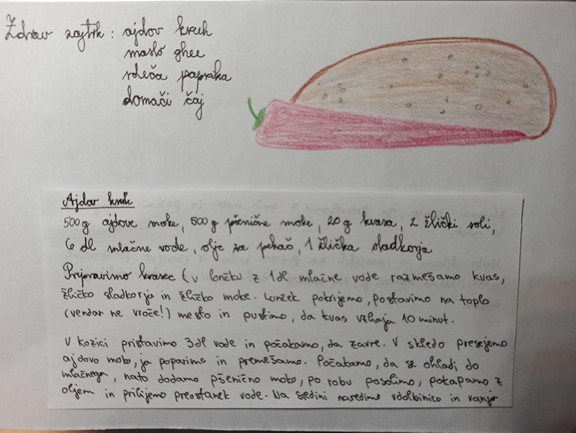 Zdrav zajtrk: ajdov kruh
maslo ghee
rdeča paprika
domači čaj
Ajdov kruh
500 g ajdove moke, 500 g pšenične moke, 20 g kvasa, 2 žlički soli,
6 dl mlačne vode, olje za pekač, 1 žlička sladkorja
Pripravimo kvasec (v lončku z 1dl mlačne vode razmešamo kvas,
žličko sladkorja in žličko moke. Lonček pokrijemo, postavimo na toplo
(vendar ne vroče!) mesto in pustimo, da kvas vzhaja 10 minut.
V kozici pristavimo 3dl vode in počakamo, da zavre. V skledo presejemo
ajdovo moko, jo poparimo in premešamo. Počakamo, da se ohladi do
mlačnega, nato dodamo pšenično moko, po robu posolimo, pokapamo z
oljem in prilijemo preostanek vode. Na sredini naredimo vdolbinico in vanjo